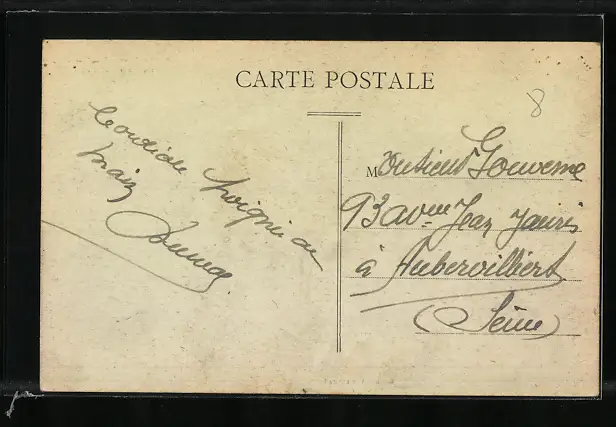 CARTE POSTALE
8
Cordiale poignée de
main
Monsieur Gouverne
93 avenue Jean Jaurès
à Aubervilliers
(Seine)